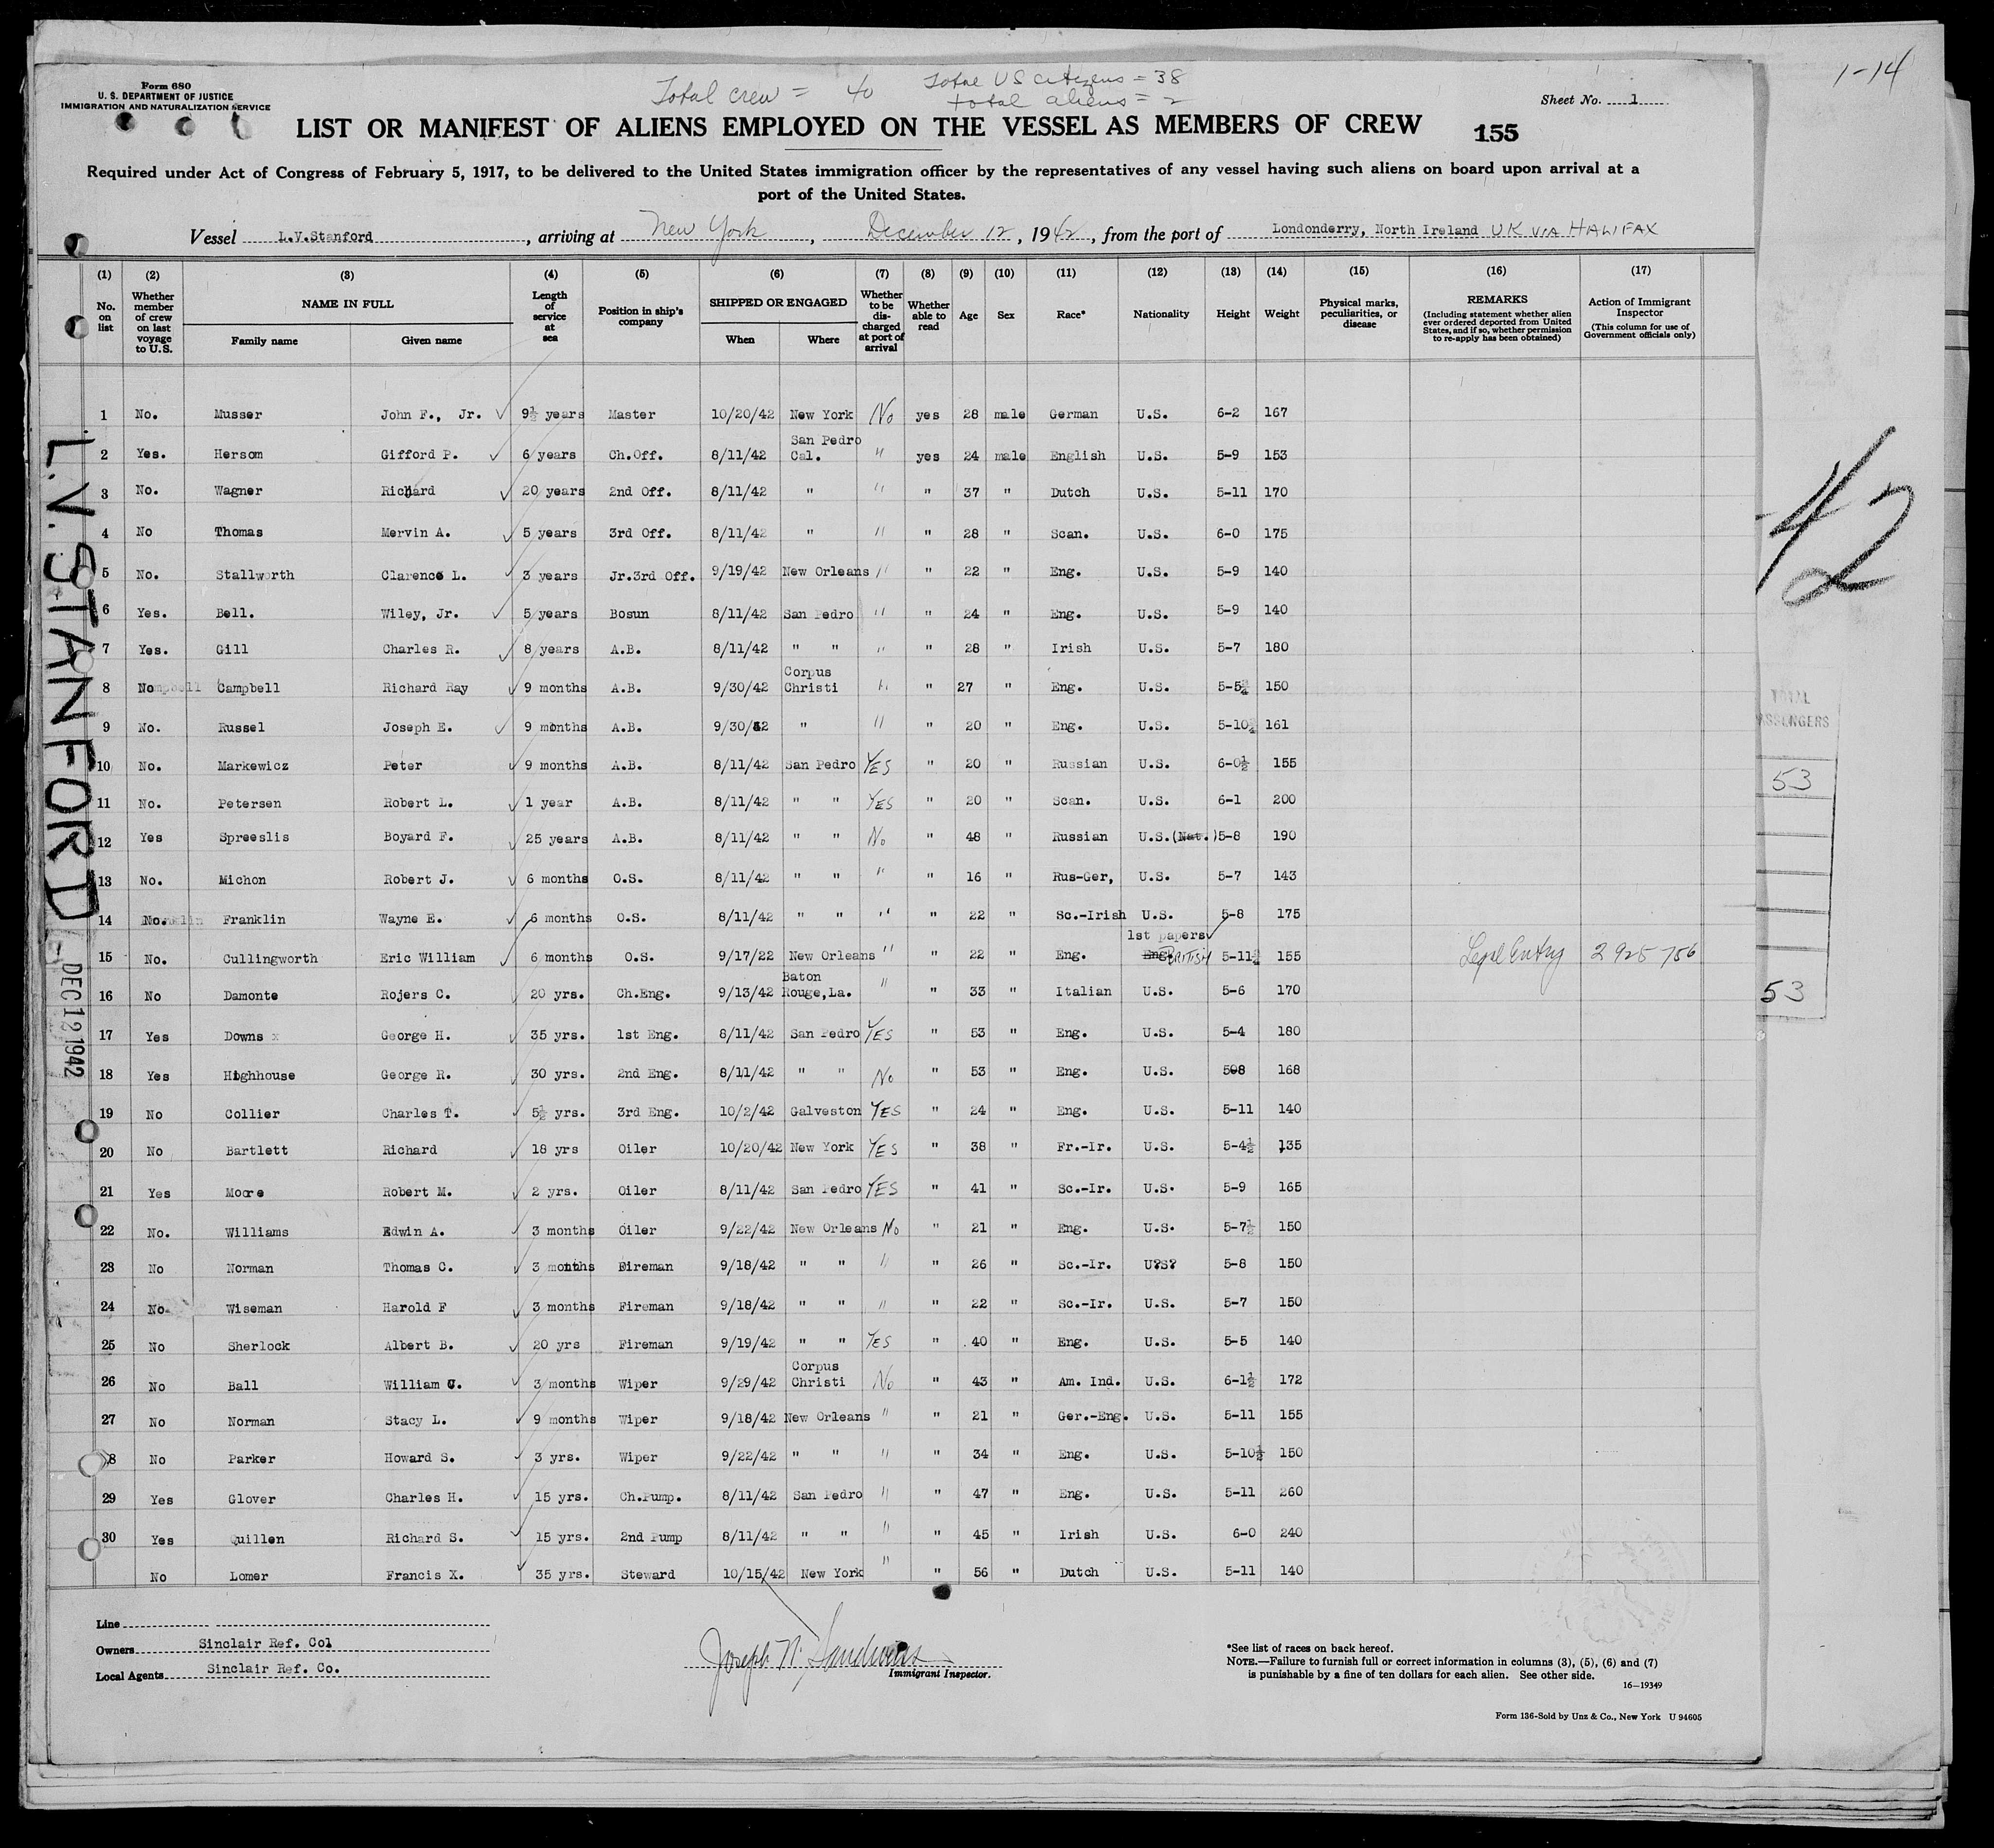 1-14
Total crew = 40 Total US citizens = 38
total aliens = 2
Form 680
U. S. DEPARTMENT OF JUSTICE
IMMIGRATION AND NATURALIZATION SERVICE
Sheet No. 1
LIST OR MANIFEST OF ALIENS EMPLOYED ON THE VESSEL AS MEMBERS OF CREW 155
Required under Act of Congress of February 5, 1917, to be delivered to the United States immigration officer by the representatives of any vessel having such aliens on board upon arrival at a
port of the United States.
Vessel L.V.Stanford, arriving at New York, December 12, 1942, from the port of Londonderry, North Ireland UK VIA HALIFAX
(1) (2) (3) (4) (5) (6) (7) (8) (9) (10) (11) (12) (13) (14) (15) (16) (17)
No. on list
Whether member of crew on last voyage to U.S.
NAME IN FULL
Family name Given name
Length of service at sea
Position in ship's company
SHIPPED OR ENGAGED
When Where
Whether to be discharged at port of arrival
Whether able to read
Age Sex Race* Nationality Height Weight
Physical marks, peculiarities, or disease
REMARKS
(Including statement whether alien ever ordered deported from United States, and if so, whether permission to re-apply has been obtained)
Action of Immigrant Inspector
(This column for use of Government officials only)
1 No. Musser John F., Jr. 9½ years Master 10/20/42 New York No yes 28 male German U.S. 6-2 167
2 Yes. Hersom Gifford P. 6 years Ch.Off. 8/11/42 San Pedro Cal. " yes 24 male English U.S. 5-9 153
3 No. Wagner Richard 20 years 2nd Off. 8/11/42 " " " 37 " Dutch U.S. 5-11 170
4 No Thomas Mervin A. 5 years 3rd Off. 8/11/42 " " " 28 " Scan. U.S. 6-0 175
5 No. Stallworth Clarence L. 3 years Jr.3rd Off. 9/19/42 New Orleans " " 22 " Eng. U.S. 5-9 140
6 Yes. Bell. Wiley, Jr. 5 years Bosun 8/11/42 San Pedro " " 24 " Eng. U.S. 5-9 140
7 Yes. Gill Charles R. 8 years A.B. 8/11/42 " " " " 28 " Irish U.S. 5-7 180
8 No Campbell Richard Ray 9 months A.B. 9/30/42 Corpus Christi " " 27 " Eng. U.S. 5-5¾ 150
9 No. Russel Joseph E. 9 months A.B. 9/30/42 " " " 20 " Eng. U.S. 5-10¾ 161
10 No. Markewicz Peter 9 months A.B. 8/11/42 San Pedro YES " 20 " Russian U.S. 6-0½ 155
11 No. Petersen Robert L. 1 year A.B. 8/11/42 " " YES " 20 " Scan. U.S. 6-1 200
12 Yes Spreeslis Boyard F. 25 years A.B. 8/11/42 " " No " 48 " Russian U.S.(Nat.) 5-8 190
13 No. Michon Robert J. 6 months O.S. 8/11/42 " " " " 16 " Rus-Ger, U.S. 5-7 143
14 No. Franklin Wayne E. 6 months O.S. 8/11/42 " " " " 22 " Sc.-Irish U.S. 5-8 175
15 No. Cullingworth Eric William 6 months O.S. 9/17/22 New Orleans " " 22 " Eng. 1st papers Eng. BRITISH 5-11½ 155 Legal Entry 2925756
16 No Damonte Rojers C. 20 yrs. Ch.Eng. 9/13/42 Baton Rouge,La. " " 33 " Italian U.S. 5-6 170
17 Yes Downs x George H. 35 yrs. 1st Eng. 8/11/42 San Pedro YES " 53 " Eng. U.S. 5-4 180
18 Yes Highhouse George R. 30 yrs. 2nd Eng. 8/11/42 " " No " 53 " Eng. U.S. 508 168
19 No Collier Charles T. 5½ yrs. 3rd Eng. 10/2/42 Galveston YES " 24 " Eng. U.S. 5-11 140
20 No Bartlett Richard 18 yrs Oiler 10/20/42 New York YES " 38 " Fr.-Ir. U.S. 5-4½ 135
21 Yes Moore Robert M. 2 yrs. Oiler 8/11/42 San Pedro YES " 41 " Sc.-Ir. U.S. 5-9 165
22 No. Williams Edwin A. 3 months Oiler 9/22/42 New Orleans No " 21 " Eng. U.S. 5-7½ 150
23 No Norman Thomas C. 3 months Fireman 9/18/42 " " " " 26 " Sc.-Ir. U?S? 5-8 150
24 No Wiseman Harold F 3 months Fireman 9/18/42 " " " " 22 " Sc.-Ir. U.S. 5-7 150
25 No Sherlock Albert B. 20 yrs Fireman 9/19/42 " " YES " 40 " Eng. U.S. 5-5 140
26 No Ball William C. 3 months Wiper 9/29/42 Corpus Christi No " 43 " Am. Ind. U.S. 6-1½ 172
27 No Norman Stacy L. 9 months Wiper 9/18/42 New Orleans " " 21 " Ger.-Eng. U.S. 5-11 155
8 No Parker Howard S. 3 yrs. Wiper 9/22/42 " " " " 34 " Eng. U.S. 5-10½ 150
29 Yes Glover Charles H. 15 yrs. Ch.Pump. 8/11/42 San Pedro " " 47 " Eng. U.S. 5-11 260
30 Yes Quillen Richard S. 15 yrs. 2nd Pump 8/11/42 " " " " 45 " Irish U.S. 6-0 240
No Lomer Francis X. 35 yrs. Steward 10/15/42 New York " " 56 " Dutch U.S. 5-11 140
L.V. STANFORD
DEC 12 1942
42
TOTAL
PASSENGERS
53
53
Line
Owners Sinclair Ref. Col
Local Agents Sinclair Ref. Co.
Joseph N.
Immigrant Inspector.
*See list of races on back hereof.
NOTE.—Failure to furnish full or correct information in columns (3), (5), (6) and (7)
is punishable by a fine of ten dollars for each alien. See other side.
16—19349
Form 136-Sold by Unz & Co., New York U 94605